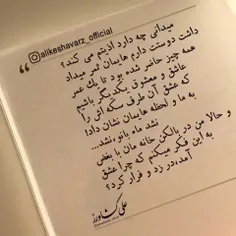 @alikeshavarz_official
میدانی چه دارد اذیتم می کند؟
داشت دوستت دارم هایمان ثمر میداد
همه چیز حاضر شده بود تا یک عمر
عاشق و معشوق یکدیگر باشیم
که عشق آن طرف سکه اش را
به ما و لحظه هایمان نشان داد!
نشد ماه بانو،نشد...
و حالا من در بالکن خانه مان با بغض
به این فکر میکنم که چرا عشق
آمد،در زد و فرار کرد؟
علی کشاورز